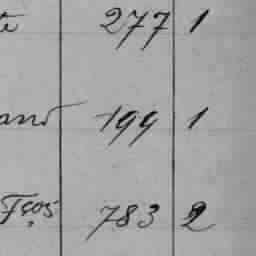 te 277 1
and 199 1
Fços 783 2